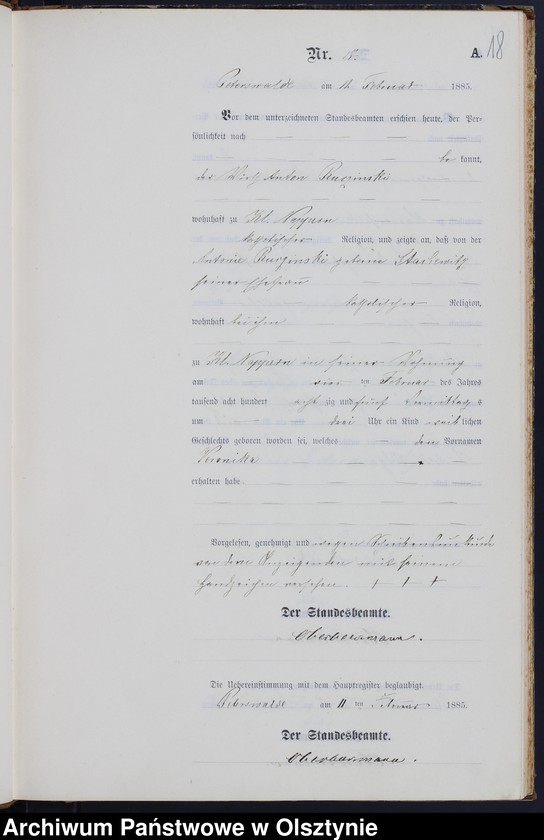 Nr. 18.
A. 18
Peterswalde am 11. Februar 1885.
Vor dem unterzeichneten Standesbeamten erschien heute, der Per-
sönlichkeit nach
be kannt,
der Anton
wohnhaft zu Kl.
katholischer Religion, und zeigte an, daß von der
geborene
seiner Ehefrau
katholischer Religion,
wohnhaft bei ihm
zu Kl. in seiner Wohnung
am vier ten Februar des Jahres
tausend acht hundert acht zig und fünf Vormittags
um drei Uhr ein Kind weib lichen
Geschlechts geboren worden sei, welches den Vornamen
Veronika
erhalten habe
Vorgelesen, genehmigt und wegen
von dem Anzeigenden mit seinem
Handzeichen versehen. + + +
Der Standesbeamte.
Die Uebereinstimmung mit dem Hauptregister beglaubigt.
Peterswalde am 11 ten Februar 1885.
Der Standesbeamte.
Archiwum Państwowe w Olsztynie